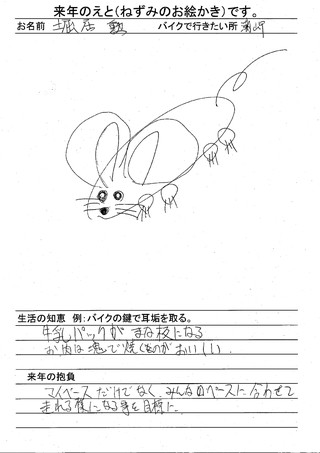 来年のえと(ねずみのお絵かき)です。
お名前 堀居 勲 バイクで行きたい所
生活の知恵 例:バイクの鍵で耳垢を取る。
牛乳パックが まな板になる
お肉は塊で焼くものが おいしい。
来年の抱負
マイペースだけでなく、みんなのペースに合わせて
走れる様になる事を目標に